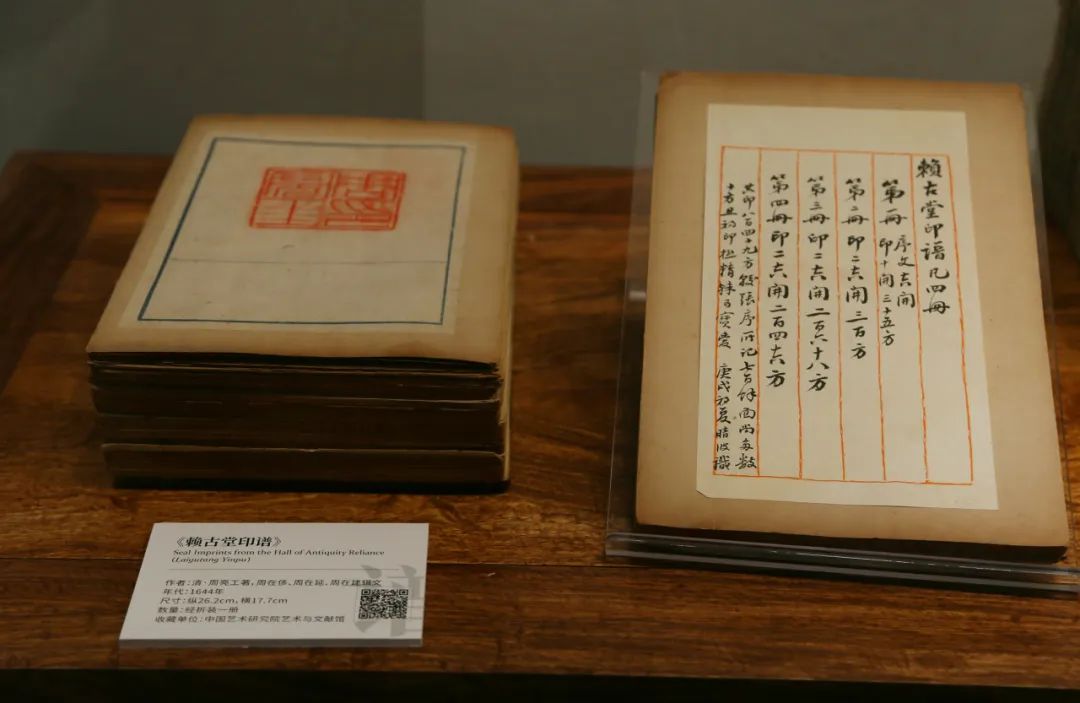 賴古堂印譜凡四冊
第一冊
序文十六開
印十開三十五方
第二冊印二十六開三百方
第三冊印二十六開二百六十八方
第四冊印二十六開二百四十六方
共印八百四十九方較張序所記七百餘面尚多數
十方且初印極精殊可寶愛 庚戌初夏晴波識
《赖古堂印谱》
Seal Imprints from the Hall of Antiquity Reliance
(Laigutang Yinpu)
作者：清·周亮工著，周在、周在延、周在建
年代：1644年
尺寸：纵26.2cm，横17.7cm
数量：经折装一册
收藏单位：中国艺术研究院艺术与文献馆